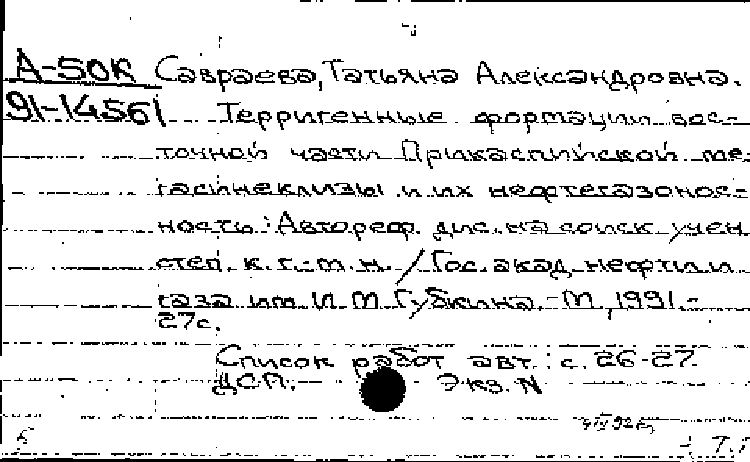 А-50К Савраева, Татьяна Александровна.
91-14561 Терригенные формации вос-
точной части Прикаспийской ме-
гасинеклизы и их нефтегазонос-
ность: Автореф. дис. на соиск. учен.
степ. к. г.-м. н. / Гос. акад. нефти и
газа им. И. М. Губкина. - М., 1991. -
27с.
Список работ авт.: с. 26-27.
ДСП. Экз. N